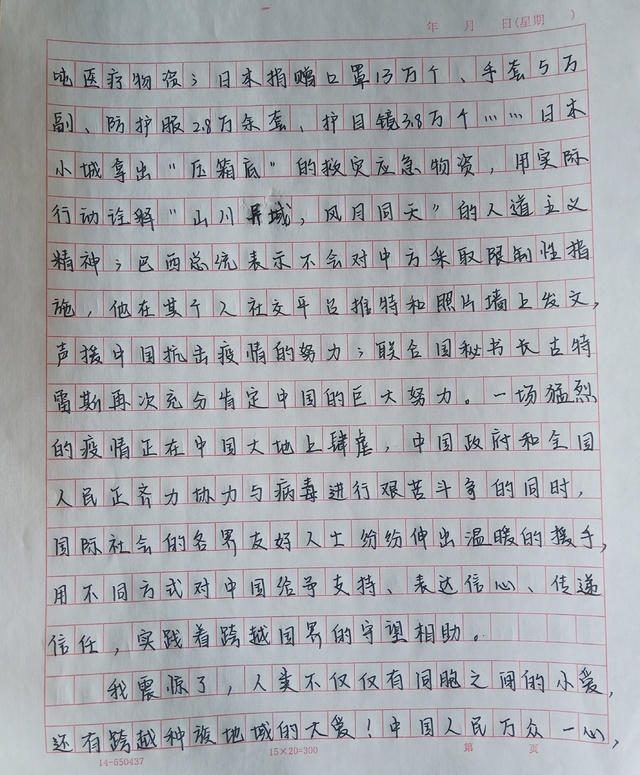 年 月 日(星期 )
吨医疗物资；日本捐赠口罩13万个、手套5万
副、防护服2.8万余套、护目镜3.8万个……日本
小城拿出“压箱底”的救灾应急物资，用实际
行动诠解“山川异城，风月同天”的人道主义
精神；巴西总统表示不会对中方采取限制性指
施，他在其个人社交平台推特和照片墙上发文，
声援中国抗击疫情的努力；联合国秘书长古特
雷斯再次充分肯定中国的巨大努力。一场猛烈
的疫情正在中国大地上肆虐，中国政府和全国
人民正齐力协力与病毒进行艰苦斗争的同时，
国际社会的各界友好人士纷纷伸出温暖的援手，
用不同方式对中国给予支持、表达信心、传递
信任，实践着跨越国界的守望相助。
我震惊了，人类不仅仅有同胞之间的小爱，
还有跨越种族地域的大爱！中国人民万众一心，
14-650437 15×20=300 第 页